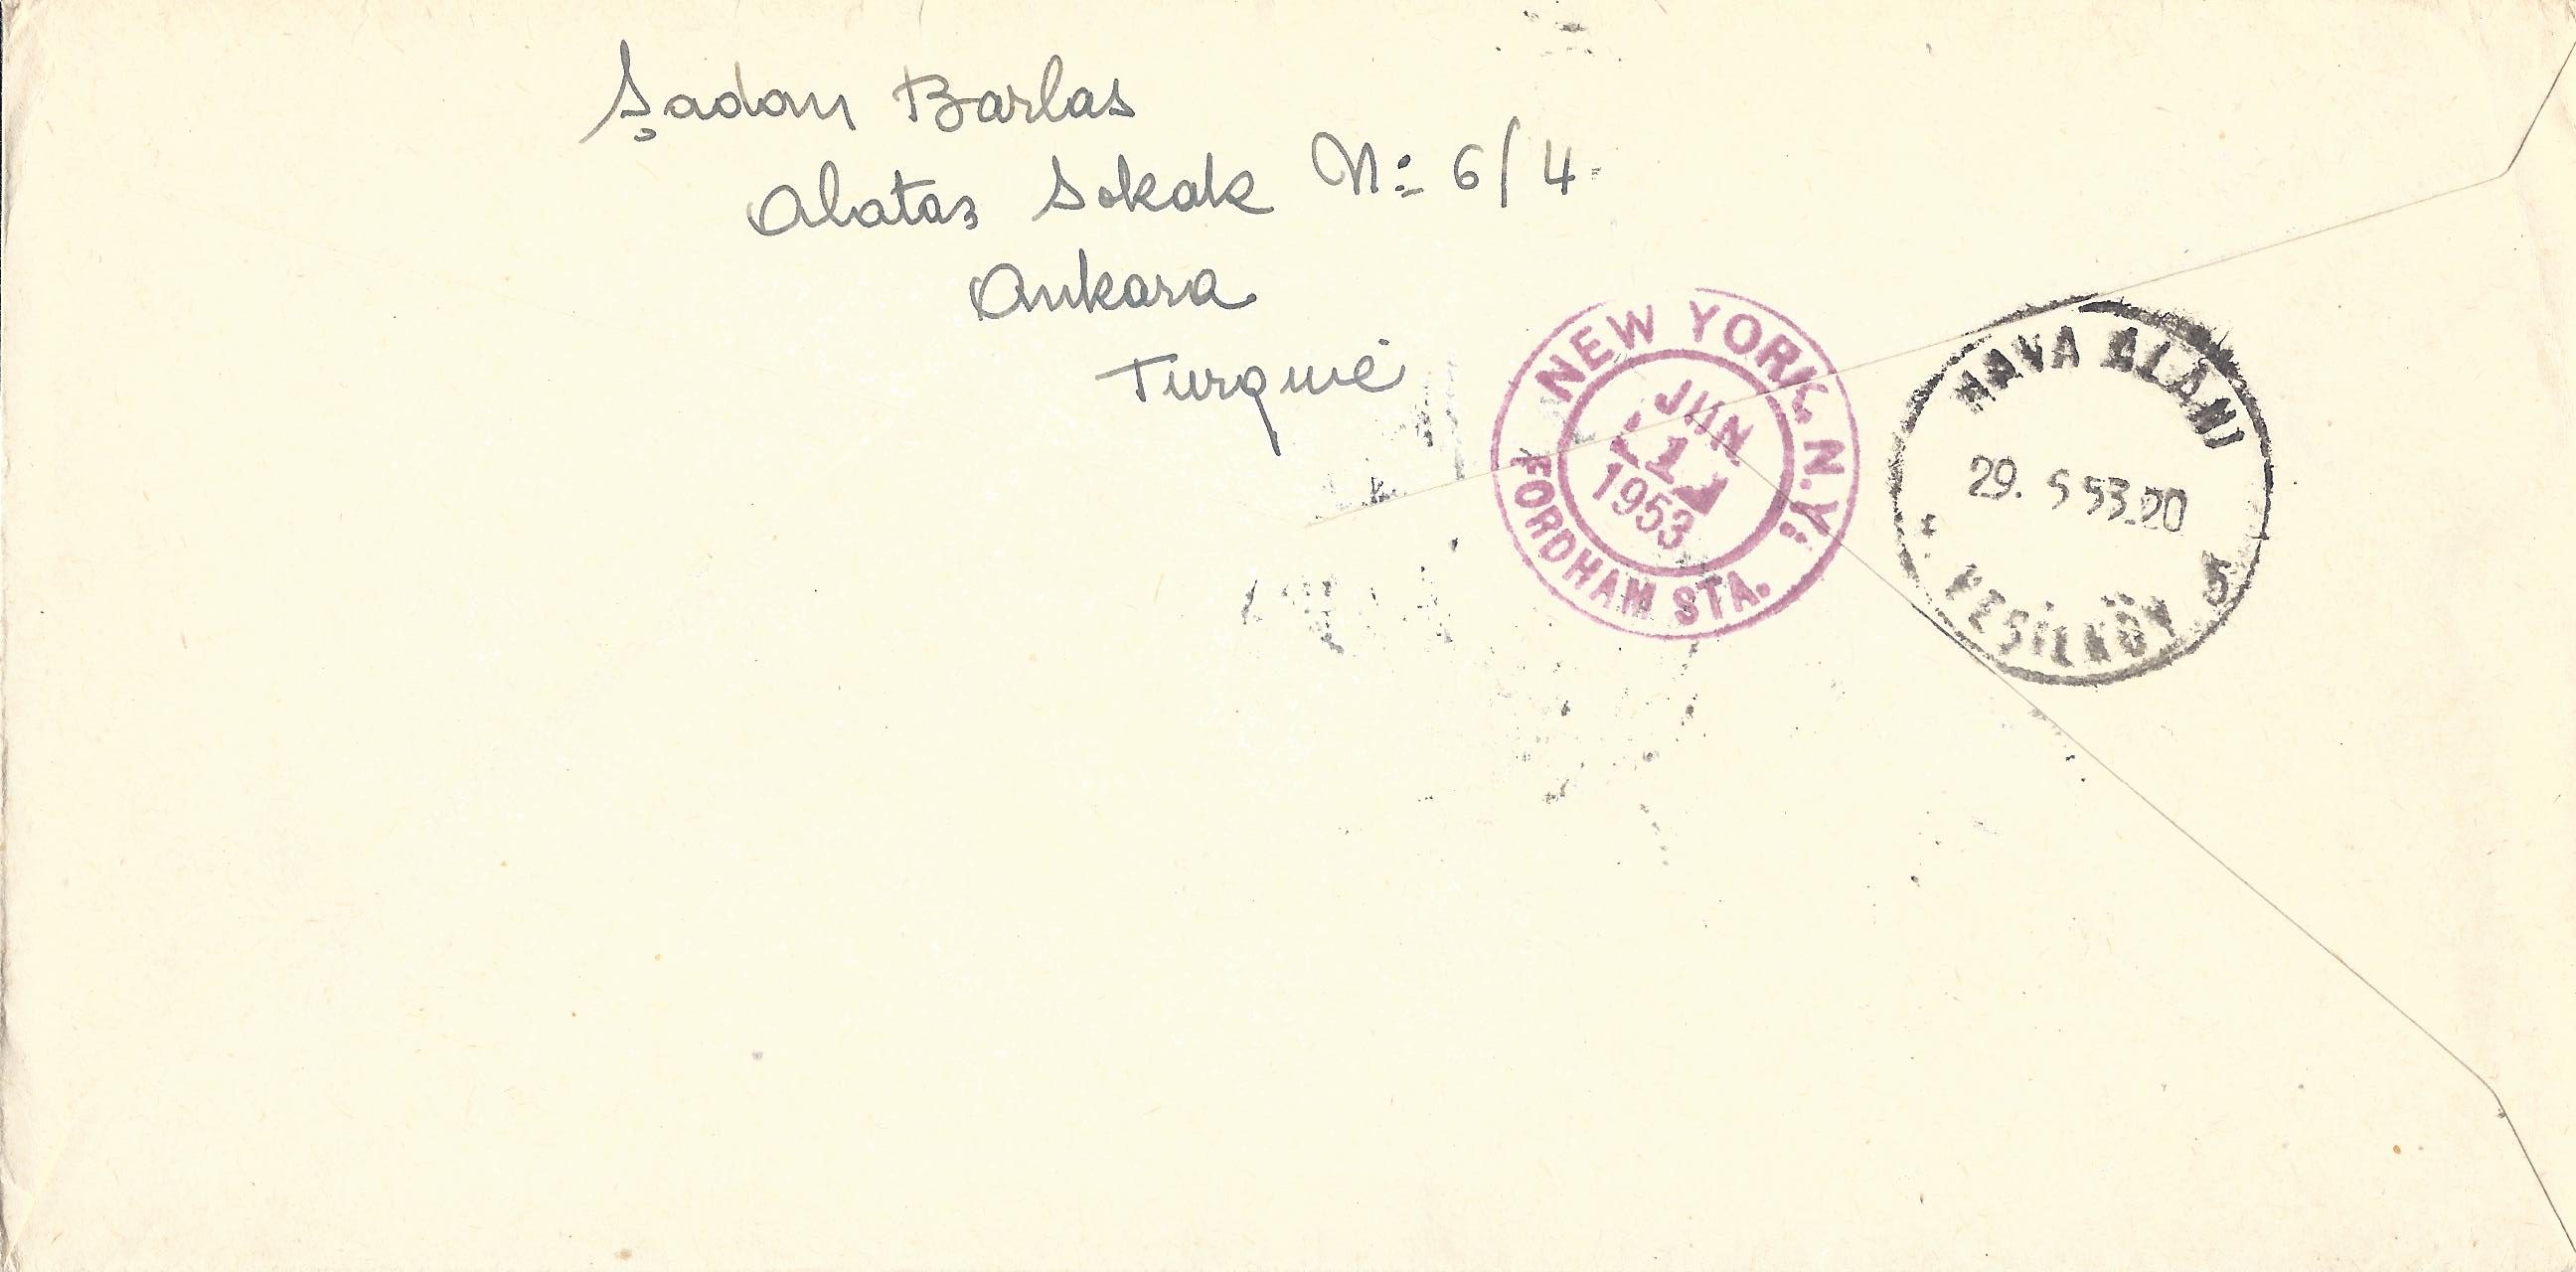 Şadan Barlas
Alataş Sokak No: 6/4
Ankara
Turquie
NEW YORK, N.Y.
JUN
1
1953
FORDHAM STA.
HAVA ALANI
29. 5 53.20
YEŞİLKÖY 5